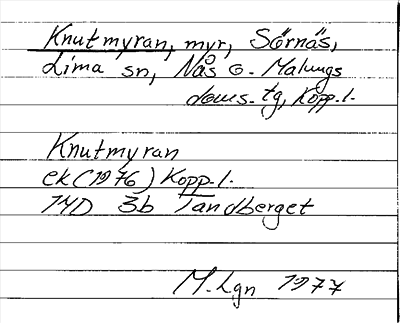 Knutmyran, myr, Sörnäs,
Lima sn, Nås o. Malungs
doms. tg, Kopp. l.
Knutmyran
ek (1976) Kopp. l.
14D 3b Tandberget
M. Lgn 1977